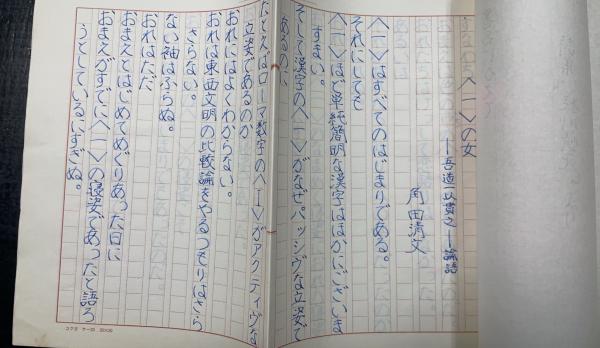 〈一〉の女
——吾道一以貫之——論語
角田清文
〈一〉はすべてのはじまりである。
それにしても
〈一〉ほど単純簡明な漢字はほかにございま
すまい。
そして漢字の〈一〉がなぜパッシヴな立姿で
あるのに
たとえばローマ数字の〈I〉がアクティヴな
立姿であるのか
おれにはよくわからない。
おれは東西文明の比較論をやるつもりはさら
さらない。
ない袖はふらぬ。
おれはただ
おまえとはじめてめぐりあった日に
おまえがすでに〈一〉の寝姿であったと語ろ
うとしているにすぎぬ。
コクヨ